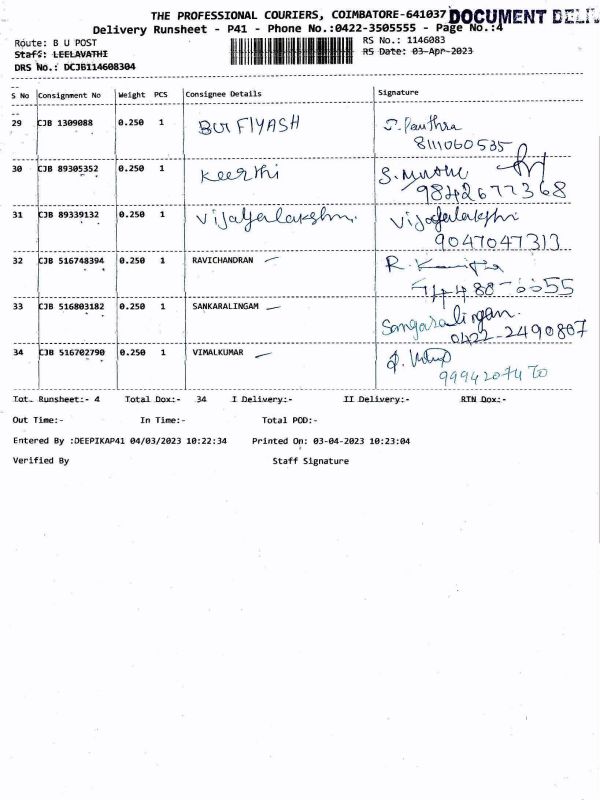 THE PROFESSIONAL COURIERS, COIMBATORE-641037 DOCUMENT DELI
Delivery Runsheet - P41 - Phone No.:0422-3505555 - Page No.:4
Route: B U POST RS No.: 1146083
Staff: LEELAVATHI RS Date: 03-Apr-2023
DRS No.: DCJB114608304
S No Consignment No Weight PCS Consignee Details Signature
29 CJB 1309088 0.250 1 BUI FIYASH
8111060535
30 CJB 89305352 0.250 1 Keerthi S.
9842677368
31 CJB 89339132 0.250 1 Vijayalakshmi. Vijayalakshmi
9047047313
32 CJB 516748394 0.250 1 RAVICHANDRAN R.
33 CJB 516803182 0.250 1 SANKARALINGAM Sangaralingan.
0422-2490807
34 CJB 516702790 0.250 1 VIMALKUMAR
9994207470
Tot. Runsheet:- 4 Total Dox:- 34 I Delivery:- II Delivery:- RTN Dox:-
Out Time:- In Time:- Total POD:-
Entered By :DEEPIKAP41 04/03/2023 10:22:34 Printed On: 03-04-2023 10:23:04
Verified By Staff Signature